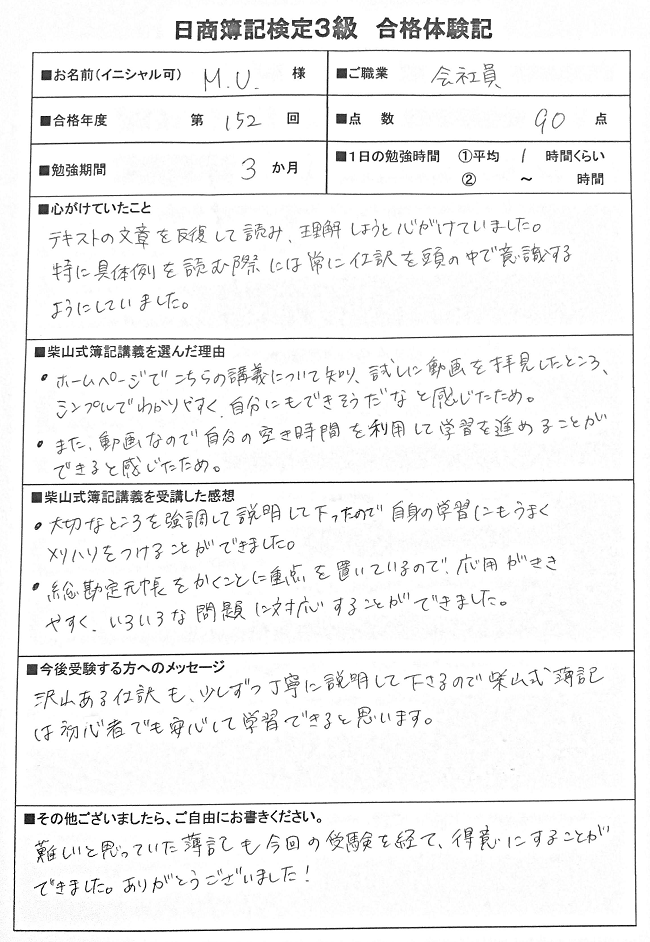 日商簿記検定3級 合格体験記
■お名前(イニシャル可) M.U. 様 ■ご職業 会社員
■合格年度 第 152 回 ■点 数 90 点
■勉強期間 3 か月 ■1日の勉強時間 ①平均 1 時間くらい
② ～ 時間
■心がけていたこと
テキストの文章を反復して読み、理解しようと心がけていました。
特に具体例を読む際には常に仕訳を頭の中で意識する
ようにしていました。
■柴山式簿記講義を選んだ理由
• ホームページでこちらの講義について知り、試しに動画を拝見したところ、
シンプルでわかりやすく、自分にもできそうだなと感じたため。
• また、動画なので自分の空き時間を利用して学習を進めることが
できると感じたため。
■柴山式簿記講義を受講した感想
• 大切なところを強調して説明して下さったので自身の学習にもうまく
メリハリをつけることができました。
• 総勘定元帳をかくことに重点を置いているので、応用がきき
やすく、いろいろな問題に対応することができました。
■今後受験する方へのメッセージ
沢山ある仕訳も、少しずつ丁寧に説明して下さるので柴山式簿記
は初心者でも安心して学習できると思います。
■その他ございましたら、ご自由にお書きください。
難しいと思っていた簿記も今回の受験を経て、得意にすることが
できました。ありがとうございました！